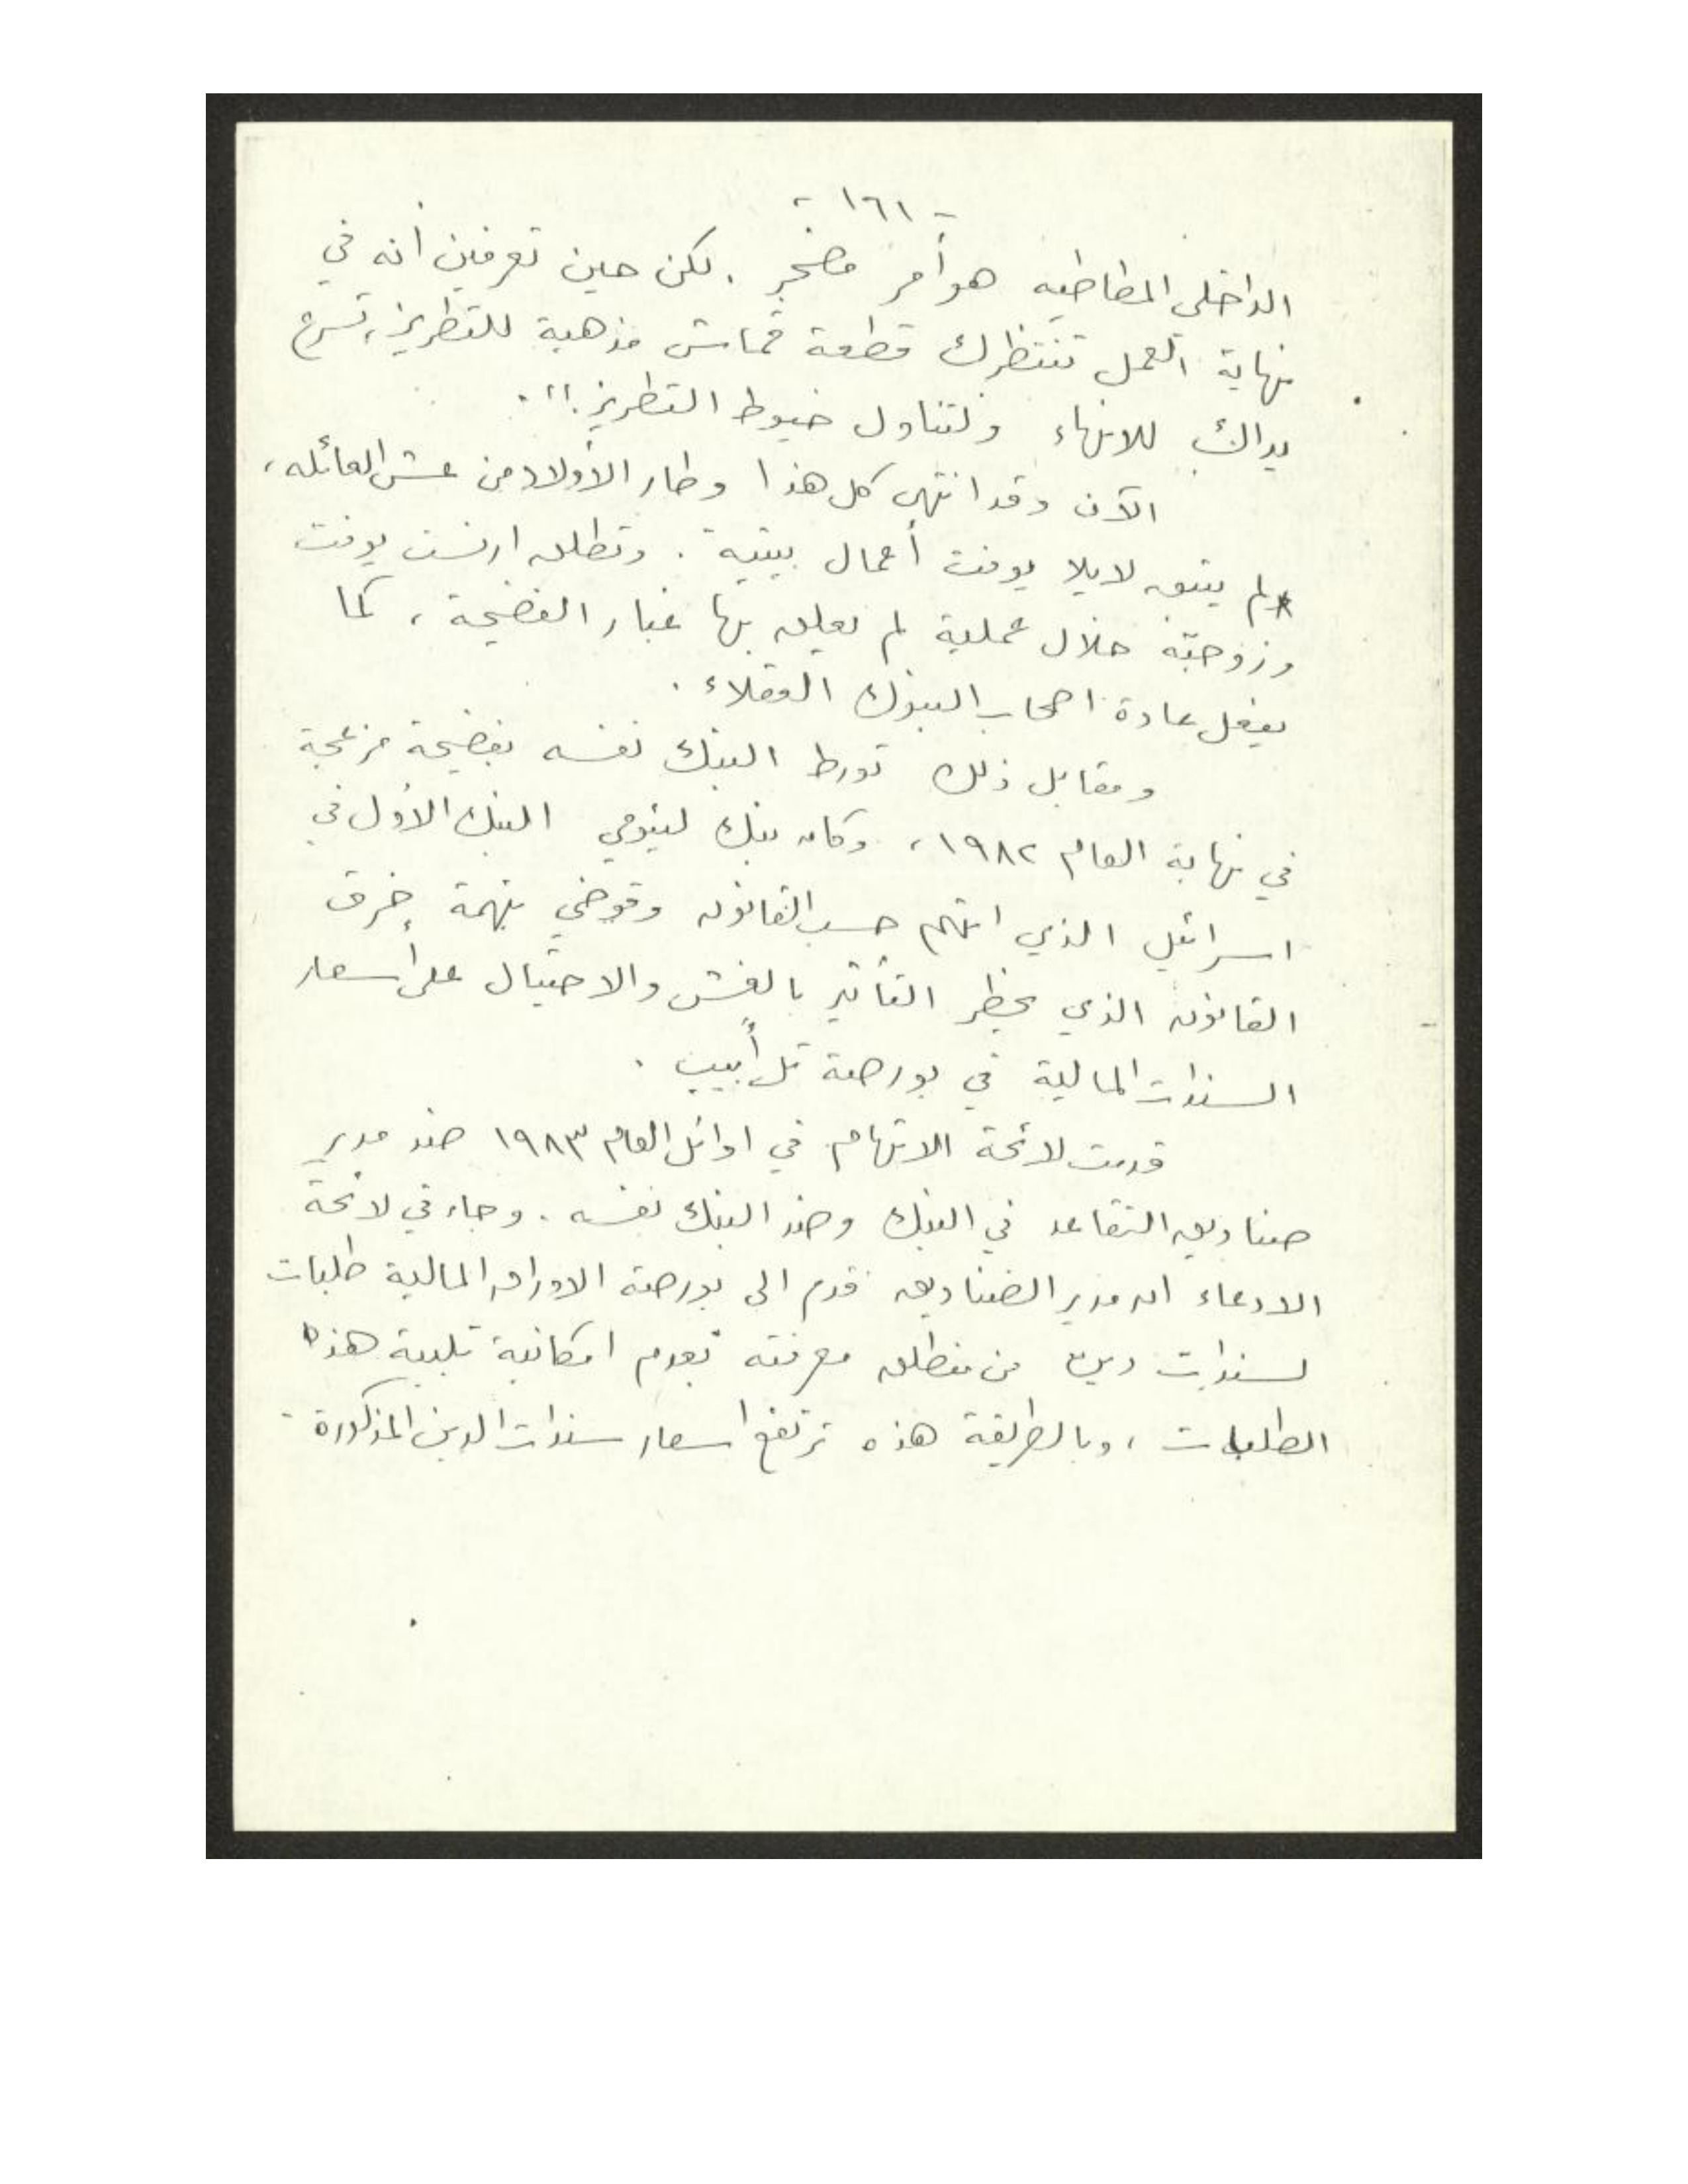 - ١٦١ -
الداخلي المطاطيه هو أمر مضجر . لكن حين تعرفين أنه في
نهاية العمل تنتظرك قطعة قماش مذهبة للتطريز، تسرع
يداك للانهاء ولتناول خيوط التطريز. " .
الآن وقد انتهى كل هذا وطار الأولاد من عش العائله ،
لم يتبق لايلا يوفت أعمال بيتية . وتطلق ارنست يوفت
وزوجته خلال عملية لم يعلق بها غبار الفضيحة ، كما
يفعل عادة اصحاب البنوك العقلاء .
ومقابل ذلك تورط البنك نفسه بفضيحة مزعجة
في نهاية العام ١٩٨٢ ، وكان بنك لئومي البنك الأول في
اسرائيل الذي اتهم حسب القانون وقوضي بتهمة خرق
القانون الذي يحظر التأثير بالغش والاحتيال على أسعار
السندات المالية في بورصة تل أبيب .
قدمت لائحة الاتهام في اوائل العام ١٩٨٣ ضد مدير
صناديق التقاعد في البنك وضد البنك نفسه . وجاء في لائحة
الادعاء ان مدير الصناديق قدم الى بورصة الاوراق المالية طلبات
لسندات دين من منطلق معرفته بعدم امكانية تلبية هذه
الطلبات ، وبالطريقة هذه ترتفع اسعار سندات الدين المذكورة .